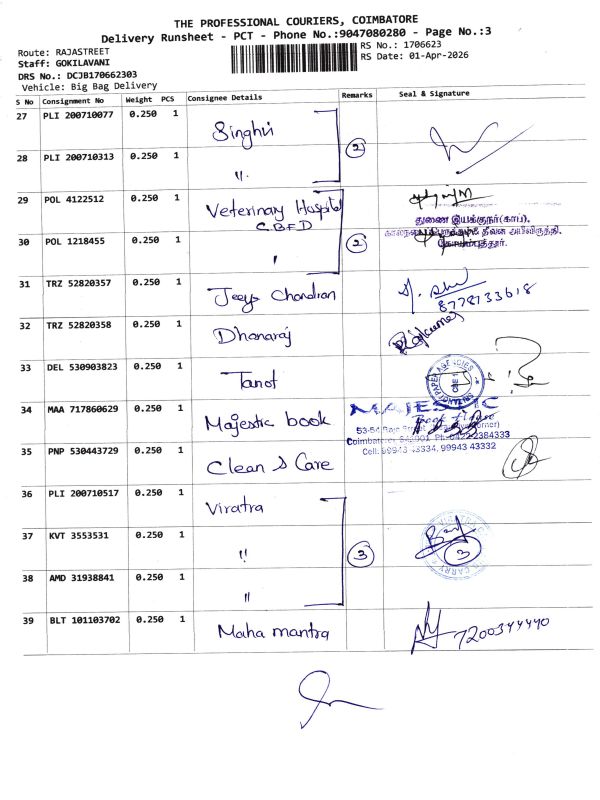 THE PROFESSIONAL COURIERS, COIMBATORE
Delivery Runsheet - PCT - Phone No.:9047080280 - Page No.:3
Route: RAJASTREET
RS No.: 1706623
Staff: GOKILAVANI
RS Date: 01-Apr-2026
DRS No.: DCJB170662303
Vehicle: Big Bag Delivery
S No Consignment No Weight PCS Consignee Details Remarks Seal & Signature
27 PLI 200710077 0.250 1 Singhvi
2
28 PLI 200710313 0.250 1 "
29 POL 4122512 0.250 1 Veterinary Hospital
C.B.F.D
துணை இயக்குநர்(காப்),
30 POL 1218455 0.250 1 " 2
கோயம்புத்தூர்.
31 TRZ 52820357 0.250 1 Jeeys Chandran
8778133618
32 TRZ 52820358 0.250 1 Dhanaraj Rajkumar
33 DEL 530903823 0.250 1 Tanot
34 MAA 717860629 0.250 1 Majestic book
MAJESTIC
Book House
53-54 Raja Street
Coimbatore 641001. Ph: 0422-2384333
Cell: 99943 43334, 99943 43332
35 PNP 530443729 0.250 1 Clean & Care
36 PLI 200710517 0.250 1 Viratra
37 KVT 3553531 0.250 1 " 3 3
38 AMD 31938841 0.250 1 "
39 BLT 101103702 0.250 1 Maha mantra 7200344440